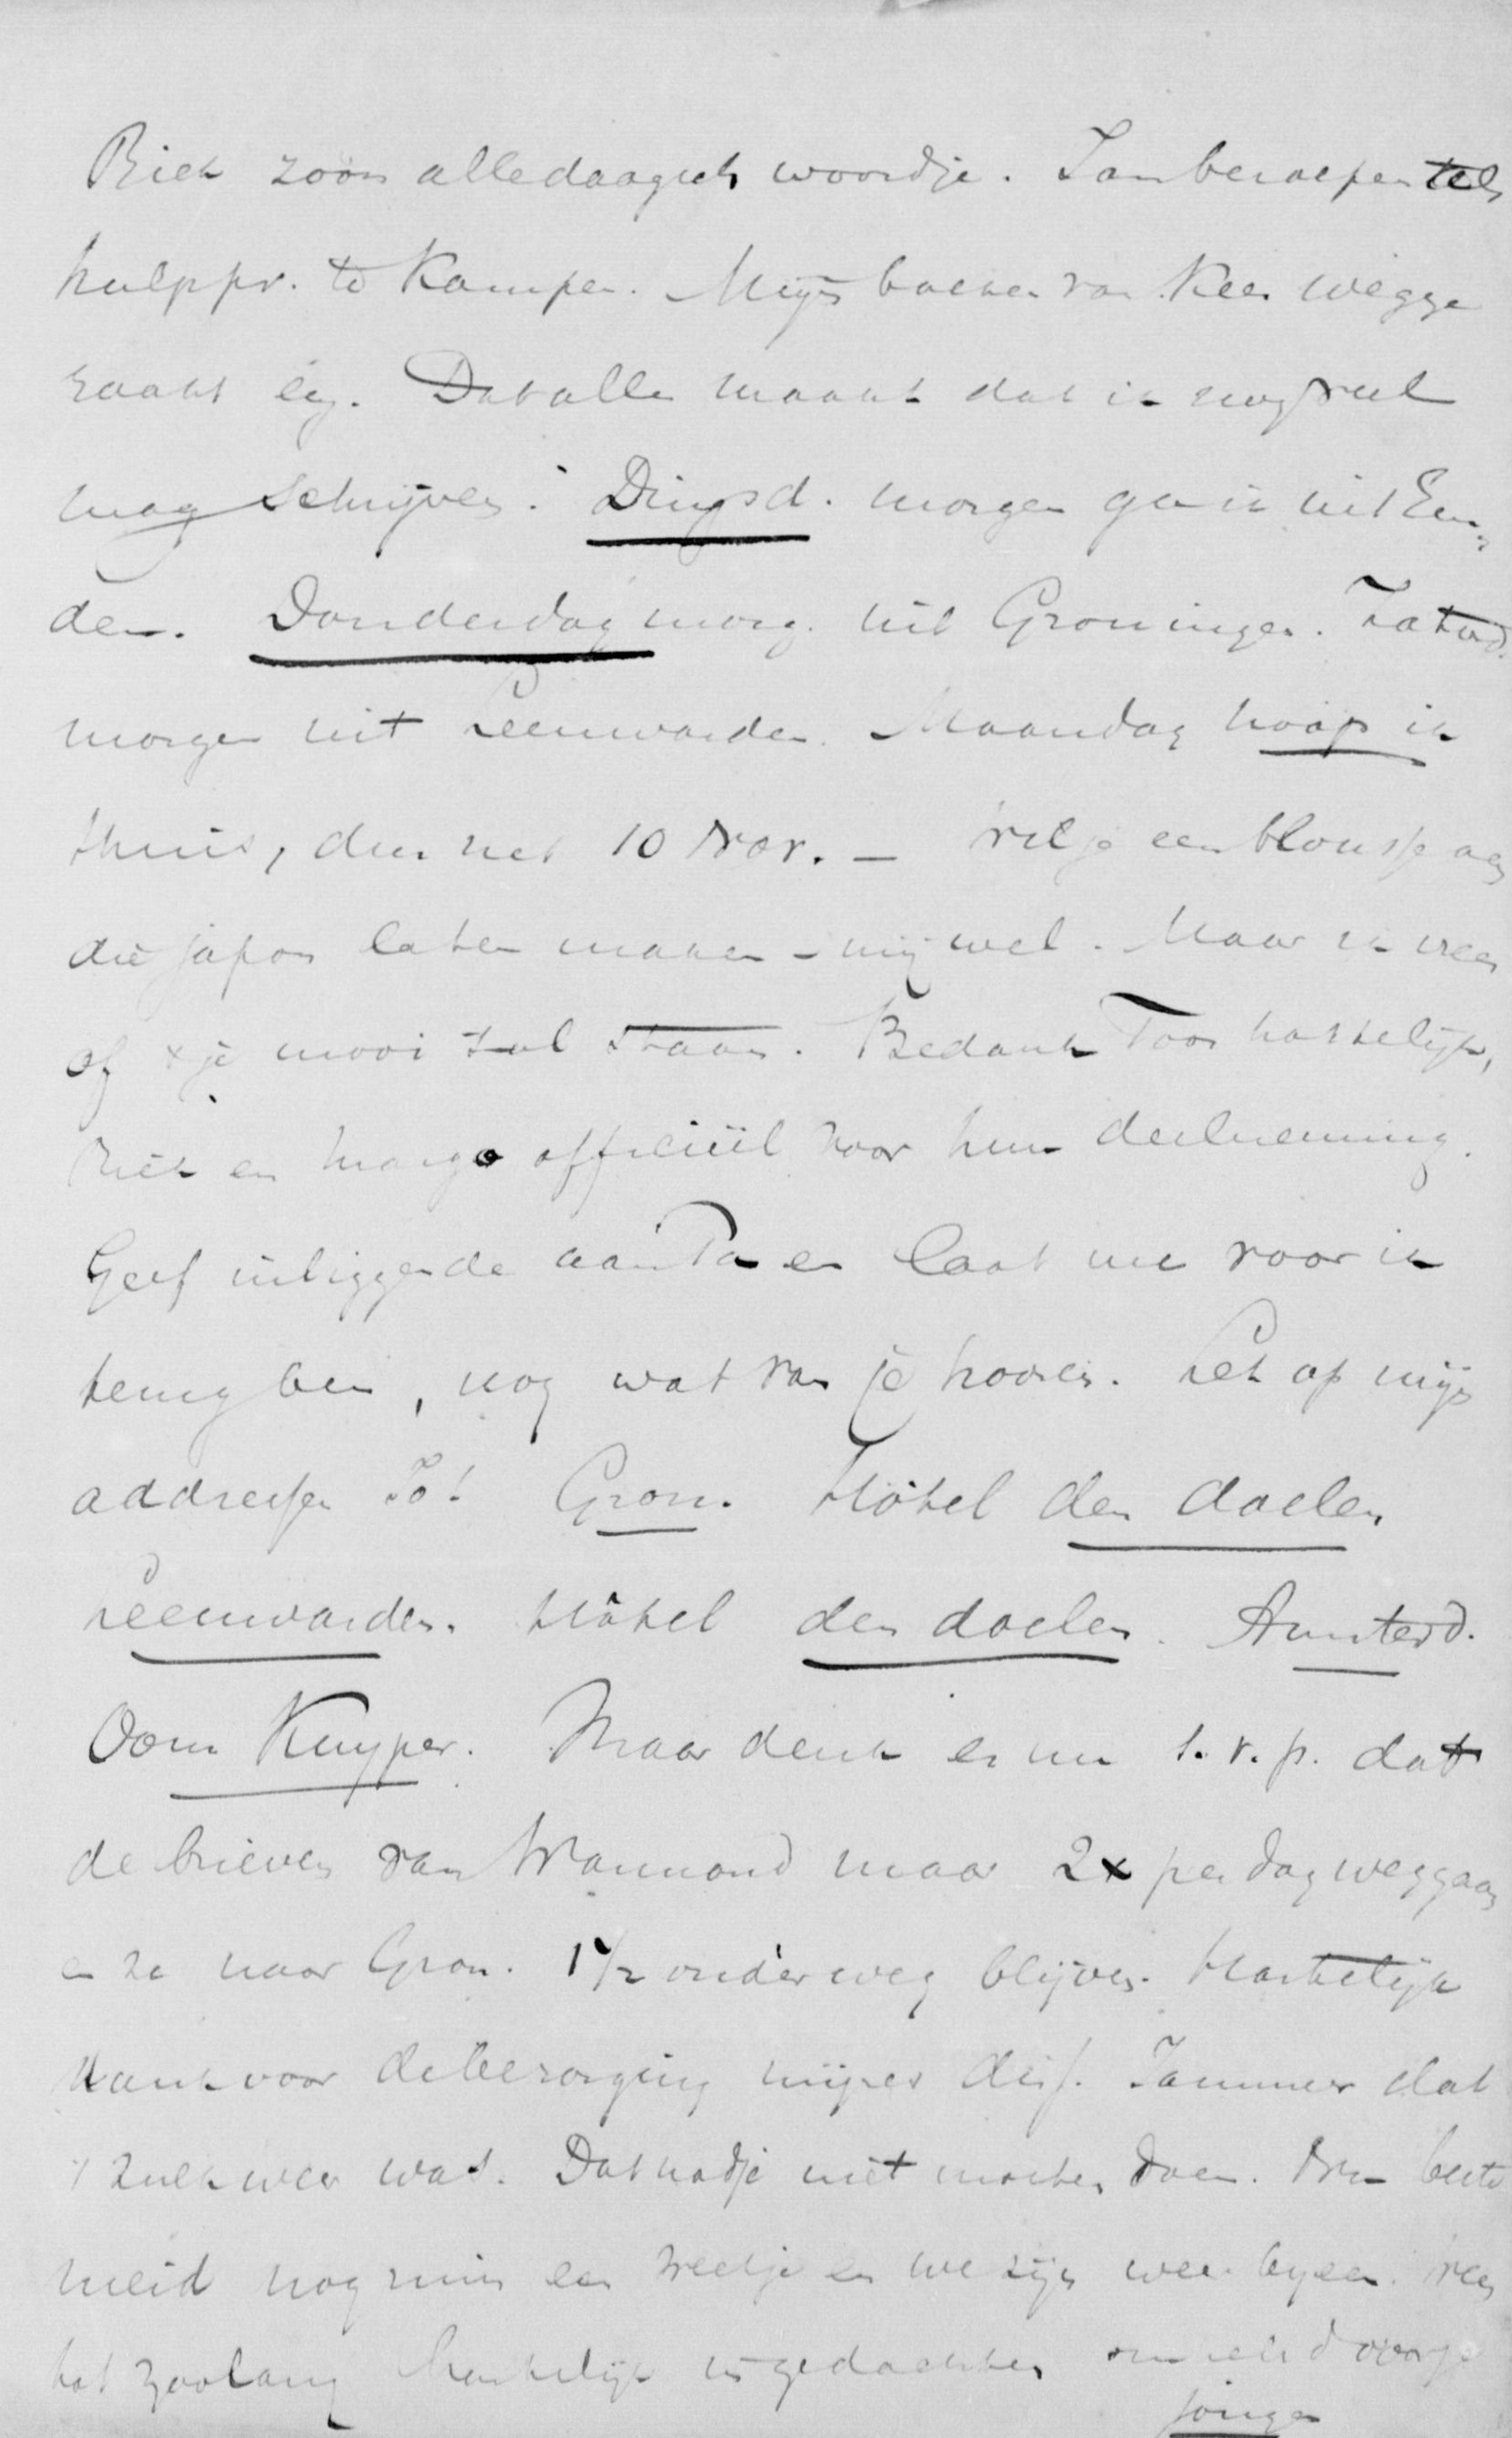 Riek zoo'n alledaagsch woordje. Jan beroepen tot
hulppr. te Kampen. Mijn boeken van Kees wegge
raakt enz. Dat alles maakt dat ik nog veel
mag schrijven. Dingsd. morgen ga ik uit Em-
den. Donderdag morg. uit Groningen. Zaterd.
morgen uit Leeuwarden. Maandag hoop ik
thuis, dus net 10 Nov. — Wil je een blousje as
die japon laten maken - mij wel. Maar ik vrees
of 't je mooi zal staan. Bedank Toos hartelijk,
Riek en Margo officiëel voor hun deelneming.
Geef inliggende aan Pa en laat me voor ik
terug ben, nog wat van je hooren. Let op mijn
addressen Jo! Gron. Hôtel den doelen
Leeuwarden. Hôtel den doelen. Amsterd.
Oom Kuyper. Maar denk er nu s.v.p. dat
de brieven van Warmond maar 2x per dag weggaan
en ze naar Gron. 1 1/2 onderweg blijven. Hartelijk
dank voor de bezorging mijner diss. Jammer dat
't zulk weer was. Dat hadje niet moeten doen. Nu beste
meid nog ruim een weekje en we zijn weer bijeen. Wees
tot zoolang hartelijk in gedachten
jongen